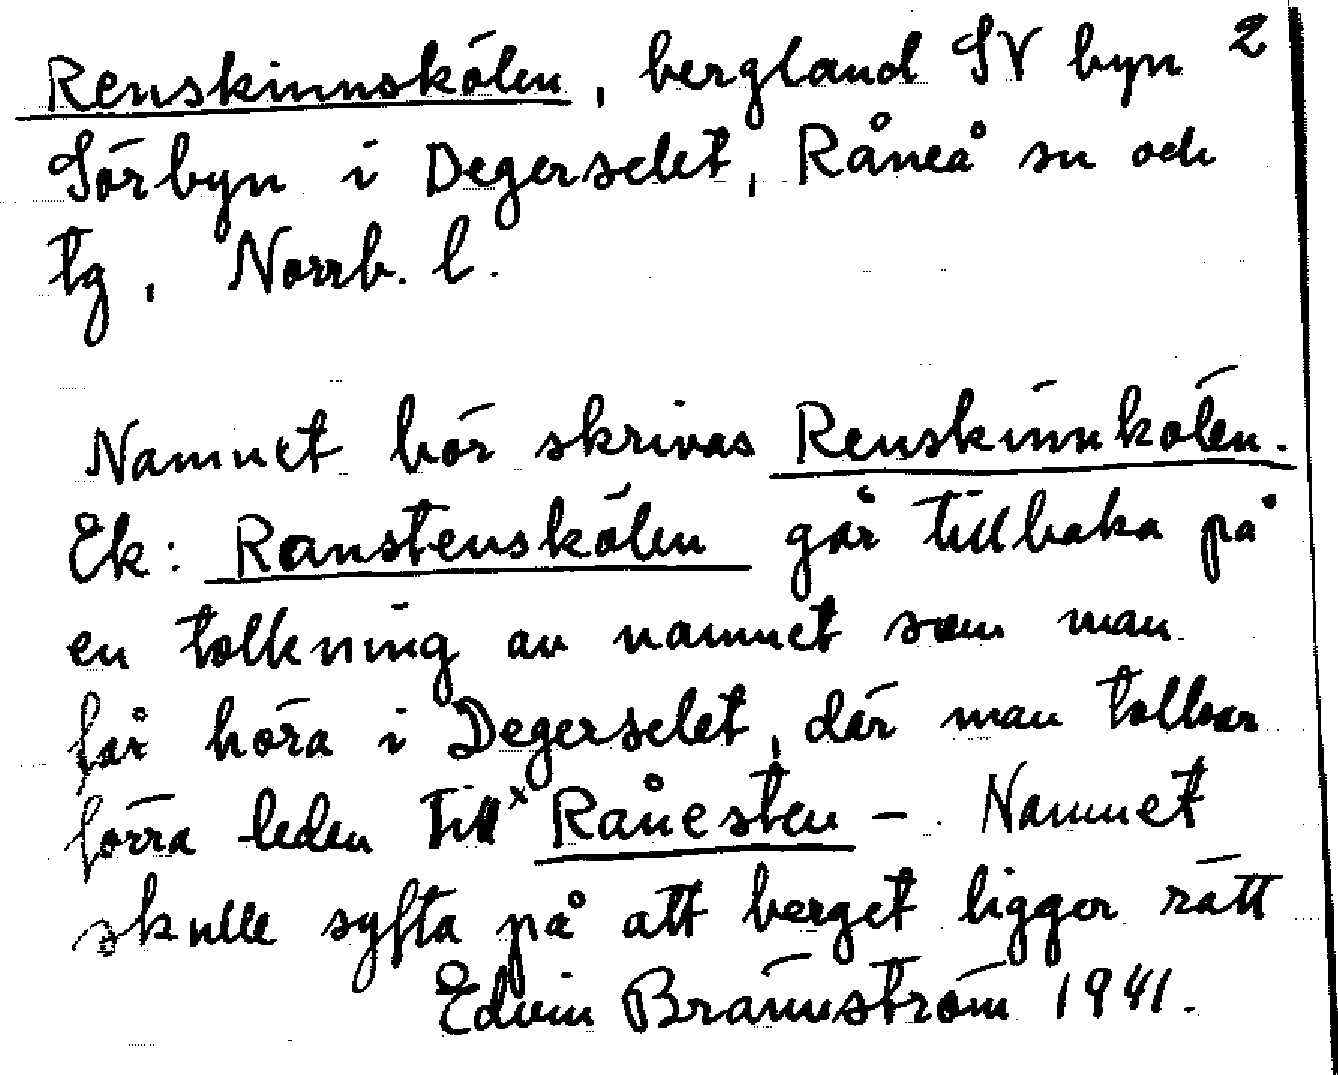 Renskinnskölen, bergland SV byn 2
Sörbyn i Degerselet, Råneå sn och
tg, Norrb. l.
Namnet bör skrivas Renskinnkölen.
Ek: Ranstenskölen går tillbaka på
en tolkning av namnet som man
får höra i Degerselet, där man tolkar
förra leden till x Rånesten – Namnet
skulle syfta på att berget ligger rätt
Edvin Brännström 1941.